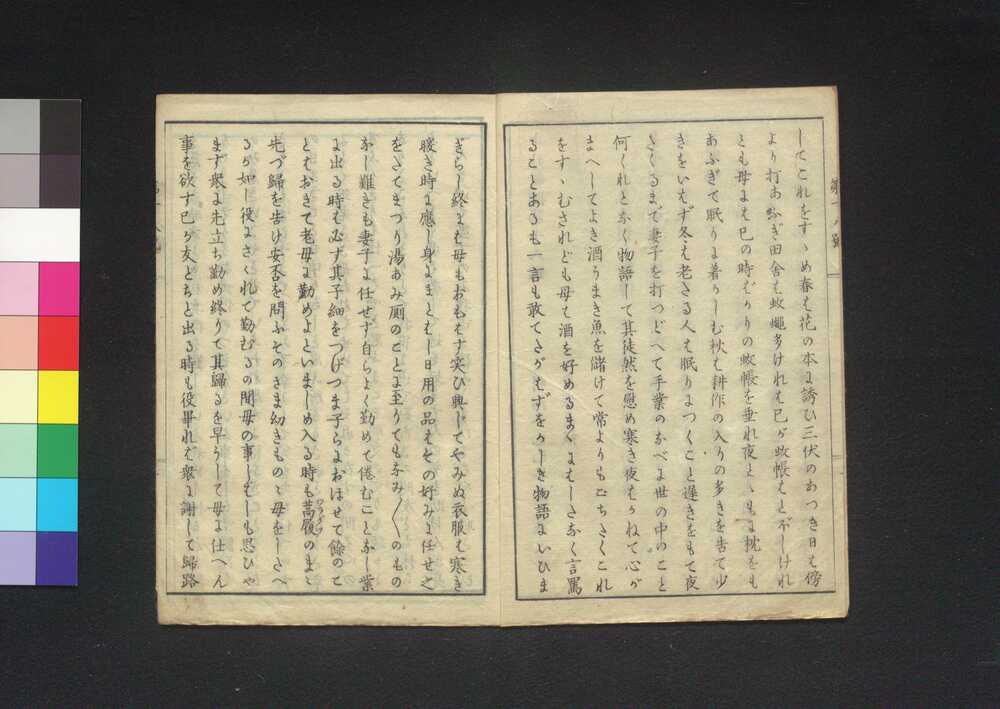 してこれをすゝめ春は花の本に誘ひ三伏のあつき日は傍
より打あふぎ田舎は蚊蠅多けれは己が蚊帳はとぼしけれ
とも母には己の時ばかりの蚊帳を垂れ夜とゝもに枕をも
あふぎて眠りに着かしむ秋は耕作の入りの多きを告て少
きをいはず冬は老たる人は眠りにつくこと遅きをもて夜
さくるまで妻子を打つどへて手業のかべに世の中のこと
何くれとなく物語して其徒然を慰め寒き夜はかねて心が
まへしてよき酒うまき魚を儲けて常よりもこちたくこれ
をすゝむされども母は酒を好めるまゝにはしたなく言罵
ることあるも一言も敢てさかはずをかしき物語にいひま
ぎらし終には母もおもはず笑ひ興じてやみぬ衣服は寒き
暖き時に應し身にまとはし日用の品はその好みに任せ之
をたてまつり湯あみ厠のことに至りてもなみ〳〵のもの
なし難きも妻子に任せず自らよく勤めて倦むことなし業
に出る時は必ず其子細をつげつま子らにおほせて餘のこ
とはおきて老母に勤めよといましめ入る時も蒿履のまゝ
ワラクツ
先づ歸を告け安否を問ふそのさま幼きものゝ母をしたへ
るが如し役にさゝれて勤むるの間母の事しはしも思ひや
まず衆に先立ち勤め終りて其歸るを早うして母に仕へん
事を欲す己が友どちと出る時も役畢れは衆に謝して歸路